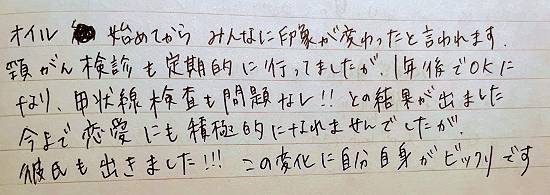 オイル 始めてから みんなに印象が変わったと言われます.
頸がん検診も定期的に行ってましたが、1年後でOKに
なり、甲状線検査も問題なし!! との結果が出ました
今まで恋愛にも積極的になれませんでしたが.
彼氏も出きました!!! この変化に自分自身がビックリです